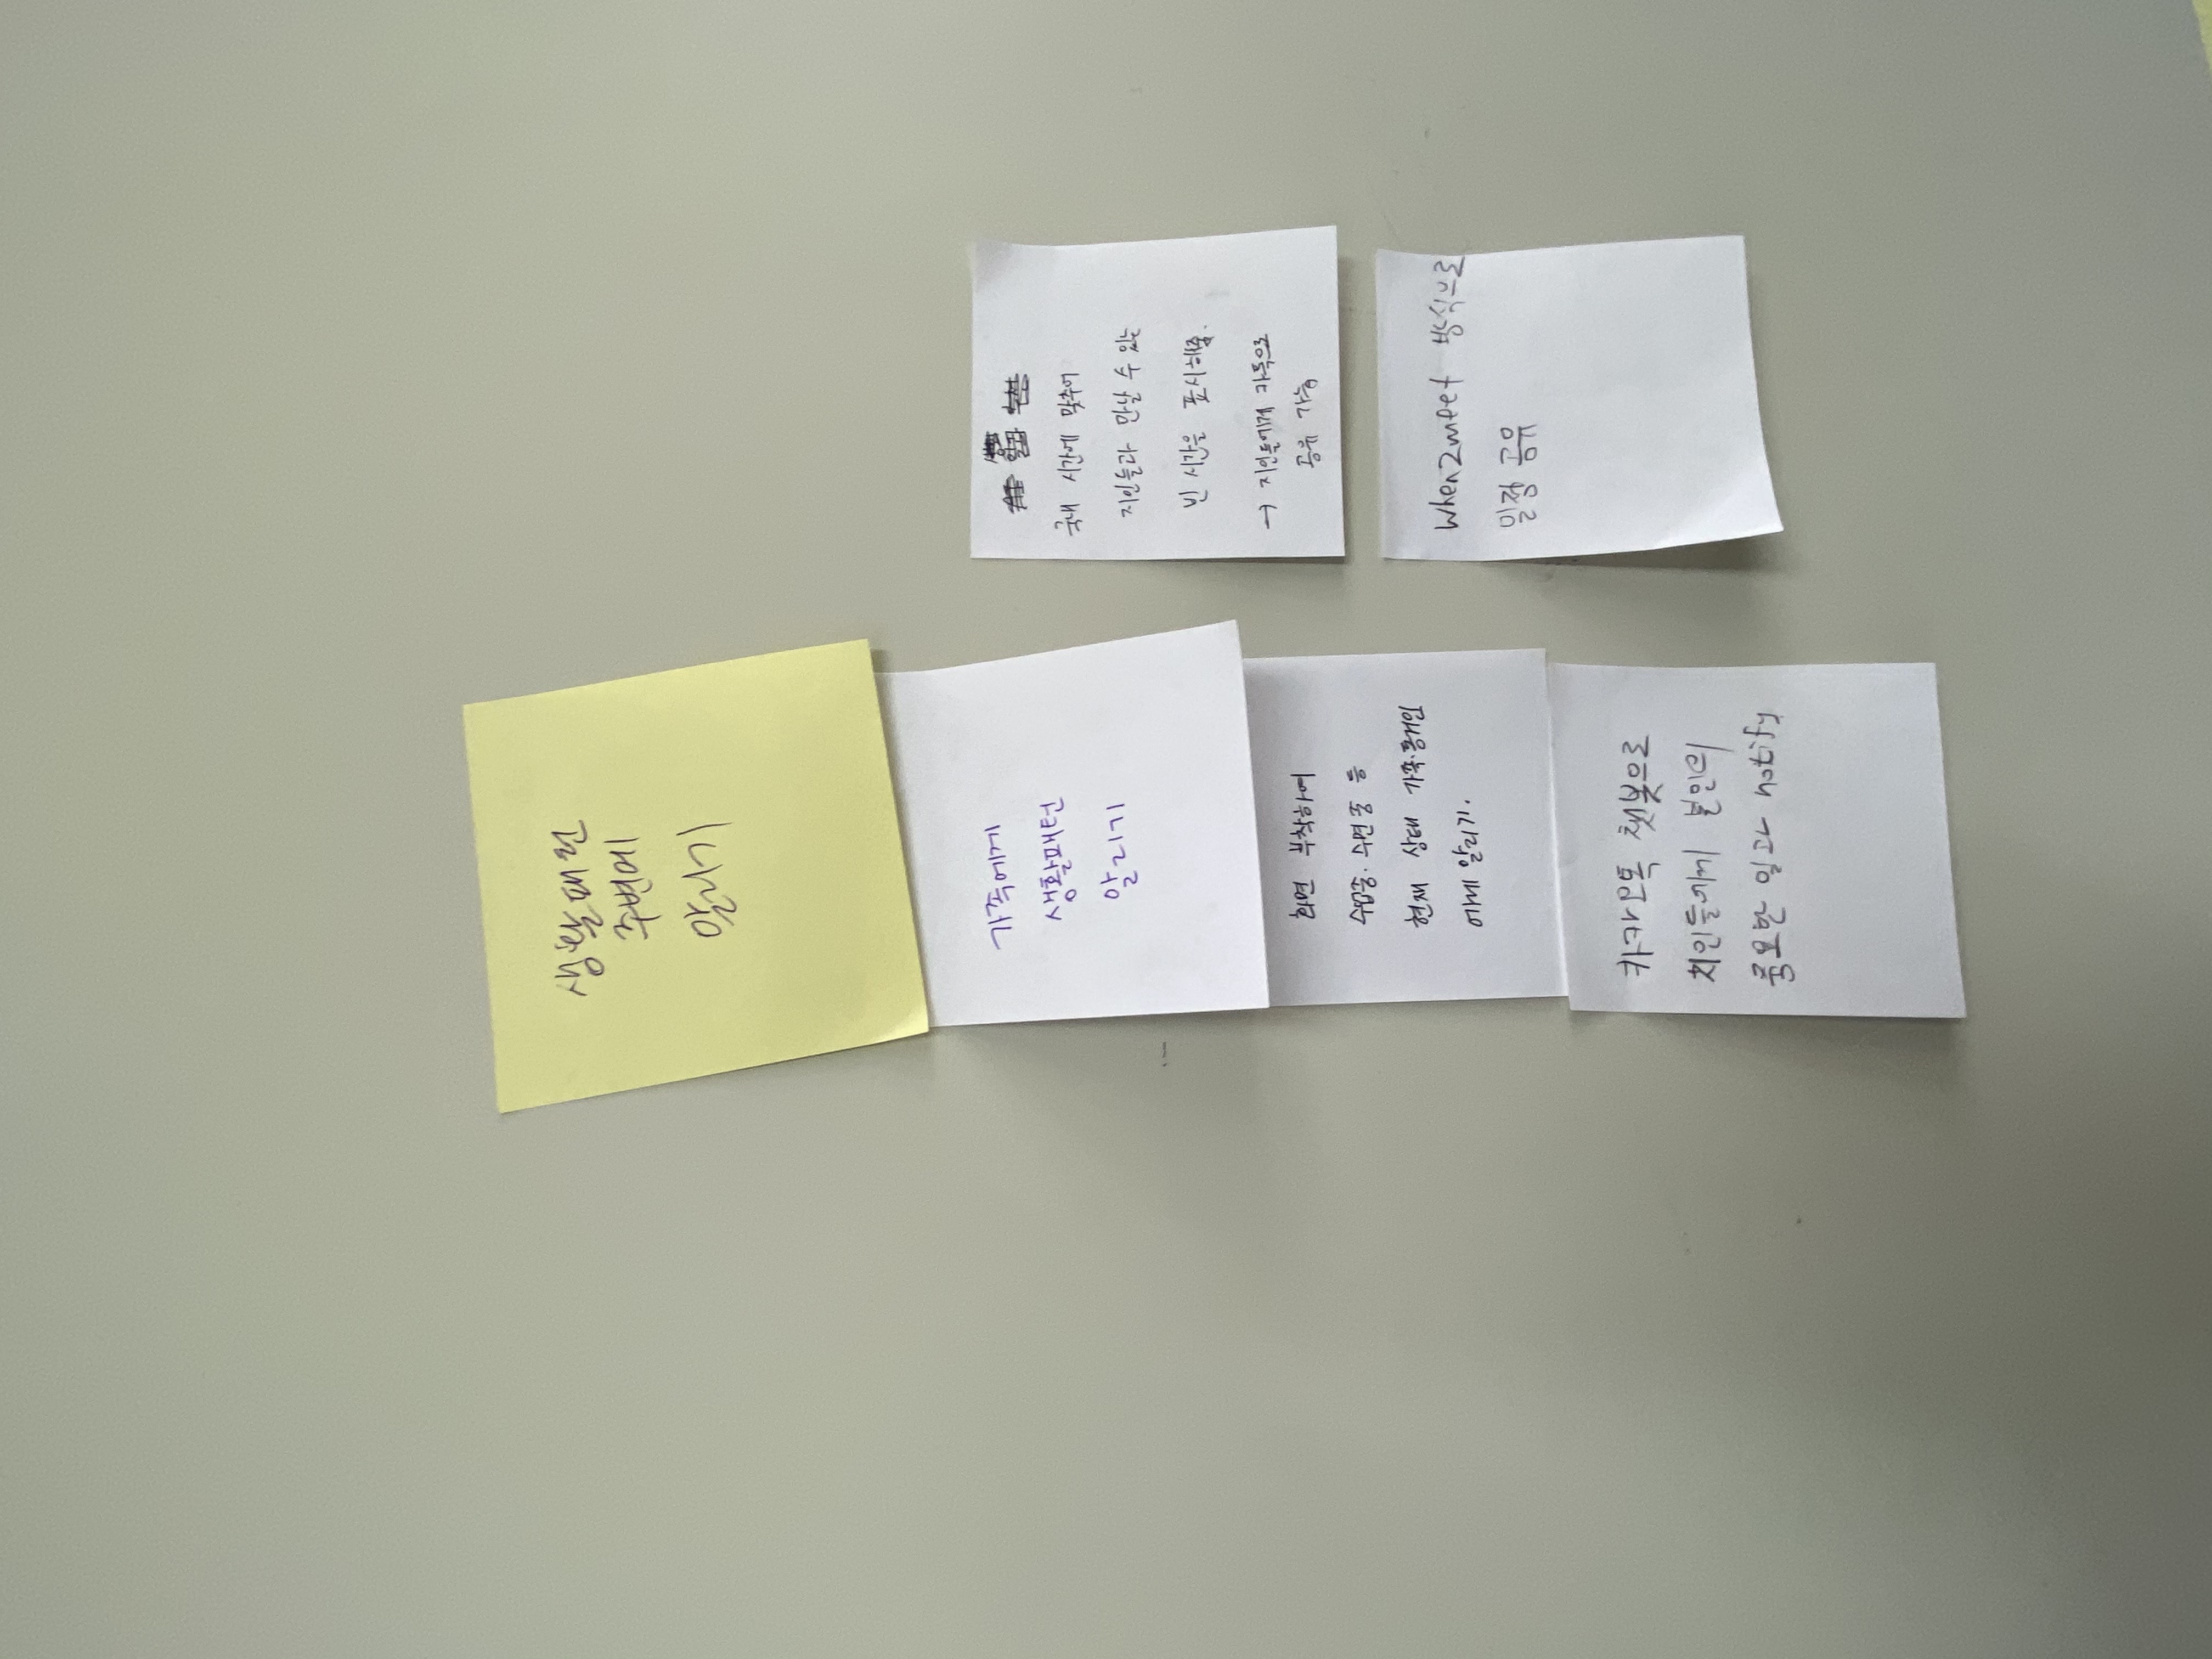 생활패턴
주변에
알리기
가족에게
생활패턴
알리기
화면 부착하여
수업중. 수면중 등
현재 상태 가족·동거인
에게 알리기.
카카오톡 챗봇으로
지인들에게 본인의
중요한 일과 notify
국내 시간에 맞추어
지인들과 만날 수 있는
빈 시간을 표시해줌.
→ 지인들에게 카톡으로
공유 가능
When2meet 방식으로
일정 공유